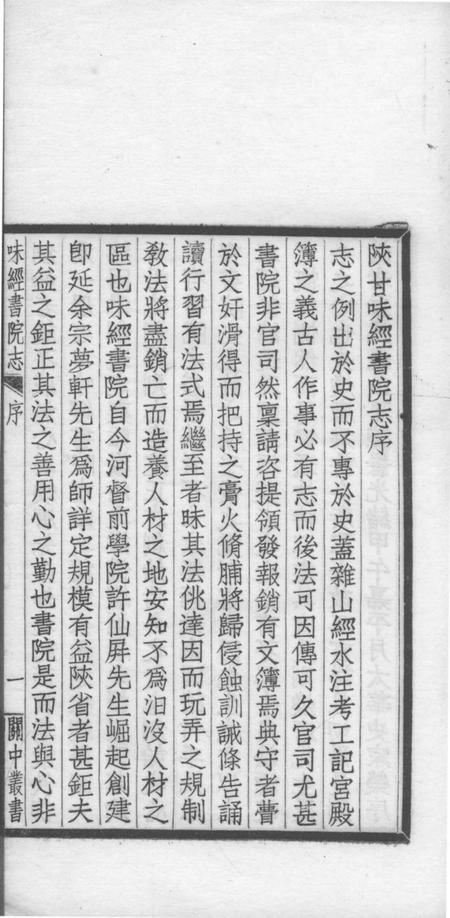 陝甘味經書院志序
志之例出於史而不專於史蓋雜山經水注考工記宮殿
簿之義古人作事必有志而後法可因傳可久官司尤甚
書院非官司然稟請咨提領發報銷有文簿焉典守者瞢
於文奸滑得而把持之膏火脩脯將歸侵蝕訓誡條告誦
讀行習有法式焉繼至者昧其法佻達因而玩弄之規制
敎法將盡銷亡而造養人材之地安知不爲汩沒人材之
區也味經書院自今河督前學院許仙屏先生崛起創建
卽延余宗夢軒先生爲師詳定規模有益陝省者甚鉅夫
其益之鉅正其法之善用心之勤也書院是而法與心非
味經書院志 序 一 關中叢書